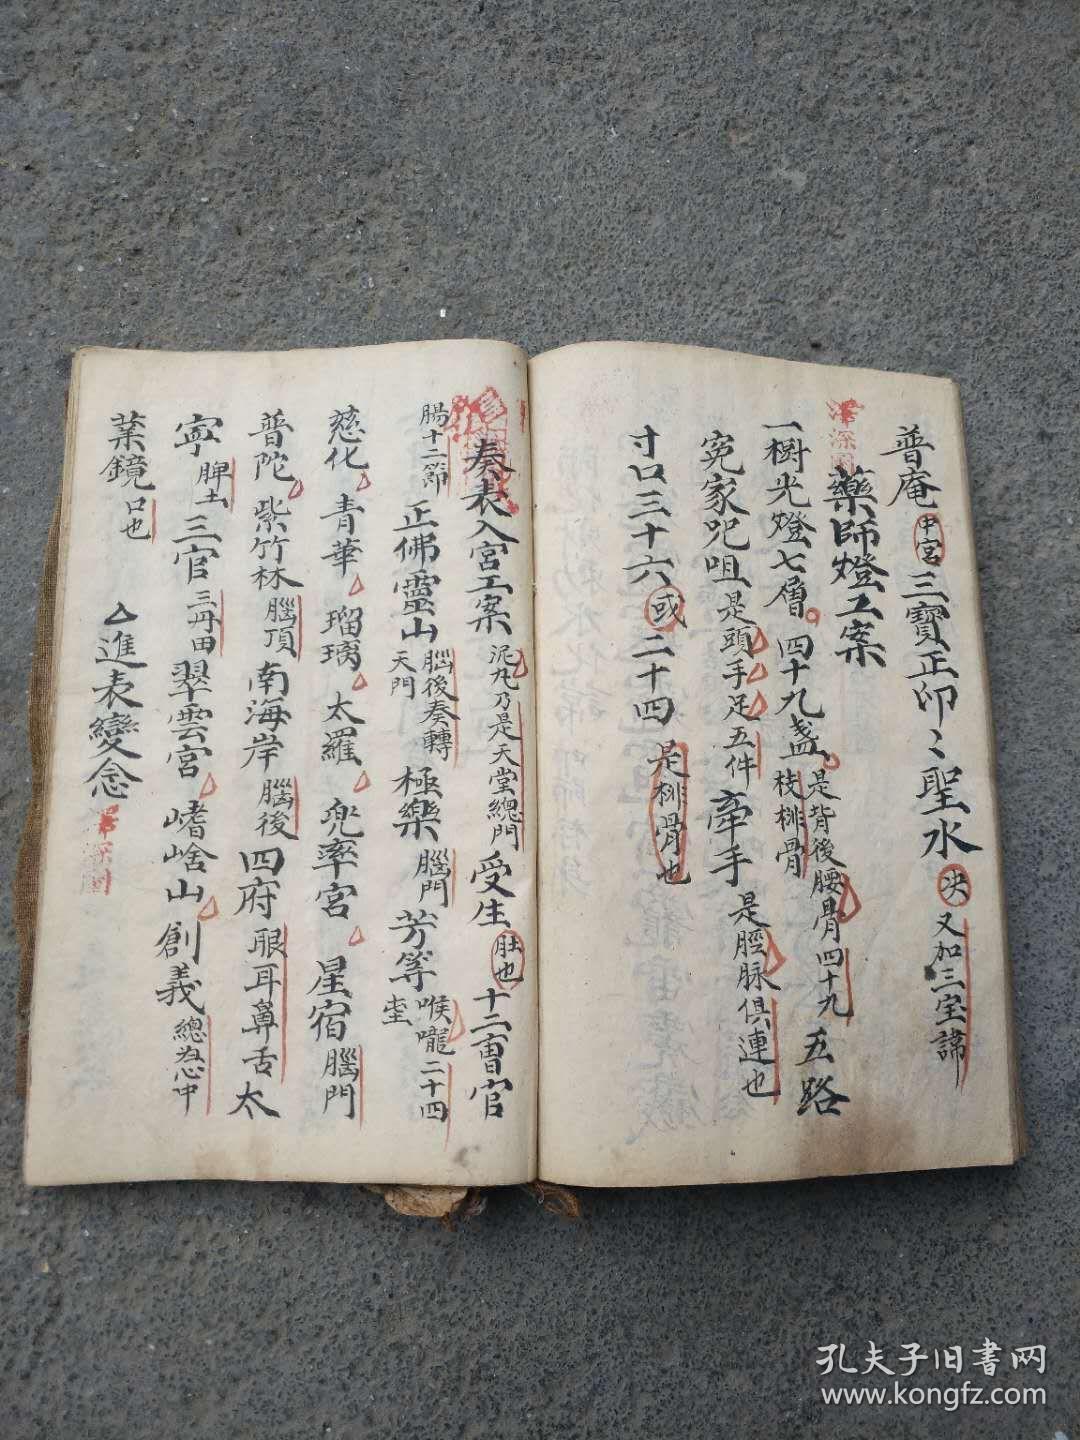 普庵中宮三寶正印〻聖水决又加三宝諱
藥師燈工案
一樹光燈七層四十九盞是背後腰骨四十九枝排骨五路
冤家咒咀是頭手足五件牽手是脛脉俱連也
寸口三十六或二十四是排骨也
奏表入宮工案泥丸乃是天堂總門受生肚也十二曹官
腸十二節正佛靈山腦後奏轉天門極樂腦門芳等喉嚨二十四
慈化青華瑠璃太羅兜率宮星宿腦門
普陀紫竹林腦頂南海岸腦後四府眼耳鼻舌太
寧脾土三官三丹田翠雲宮嗜啥山創義總為心中
業鏡口也
進表變念
孔夫子旧書网
www.kongfz.com